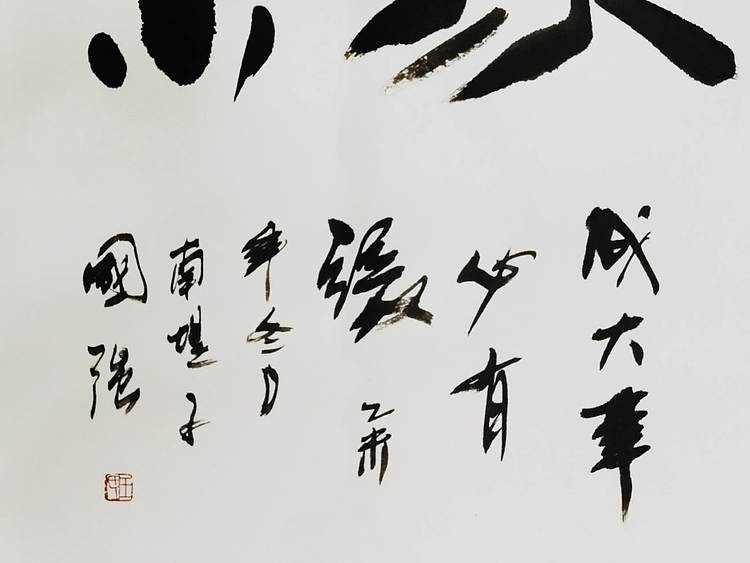 成大事
必有
乙未
年冬月
南堤子
國強